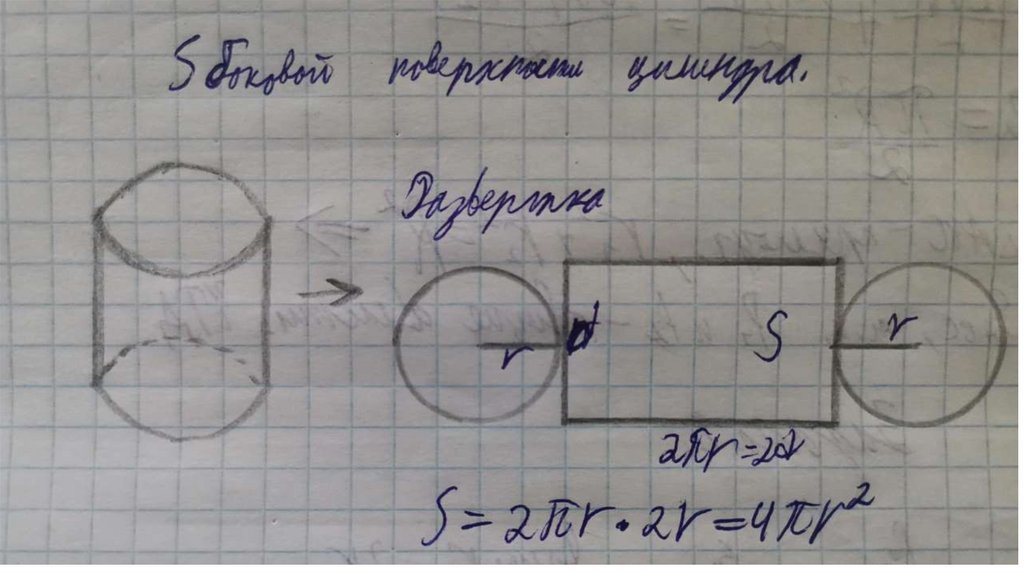 S боковой поверхности цилиндра.
Развертка
r
d
S
r
2πr=2d
S=2πr·2r=4πr²